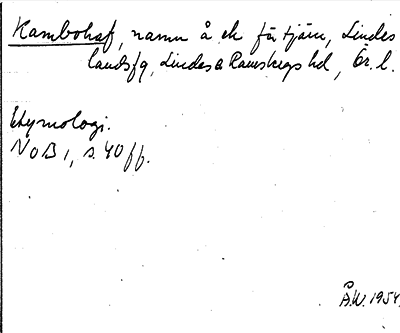 Kambohaf, namn å ek för tjärn, Lindes
landsfg, Lindes & Ramsbergs hd, Ör. l.
Etymologi.
NoB 1, s. 40 ff.
Å.W. 1954.